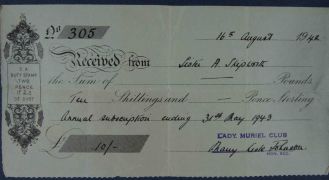 No 305
16th August 1942
Received from
A. Skipworth
the Sum of — Pounds
Ten Shillings and — Pence Sterling
Annual subscription ending 31st May 1943
£ 10/-
LADY MURIEL CLUB
Johnson
HON. SEC.
DUTY STAMP
TWO
PENCE
IF £2
OR OVER